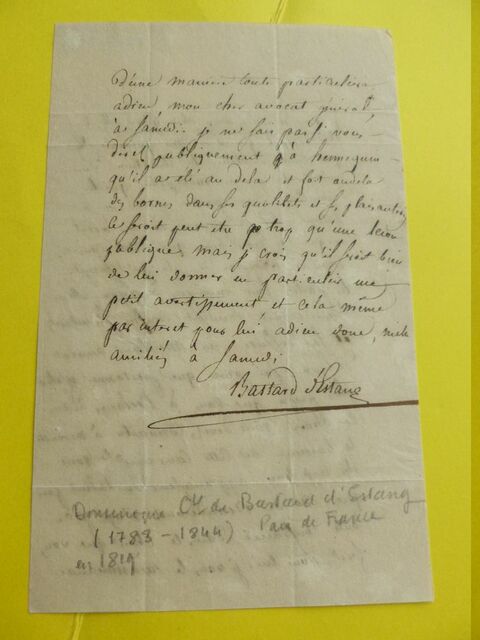 d'une manière toute particulière
adieu, mon cher avocat général
à Samedi. je ne sais pas si vous
direz publiquement à hennequin
qu'il a été au delà et fort au delà
des bornes dans ses qualités et ses plaisanteries
ce serait peut etre trop qu'une leçon
publique, mais je crois qu'il seroit bien
de lui donner en particulier un
petit avertissement et cela même
par interet pour lui, adieu donc, mille
amitiés, à Samedi
Bastard d'Estang
Dominique Cte de Bastard d'Estang
(1783 - 1844) Pair de France
en 1819